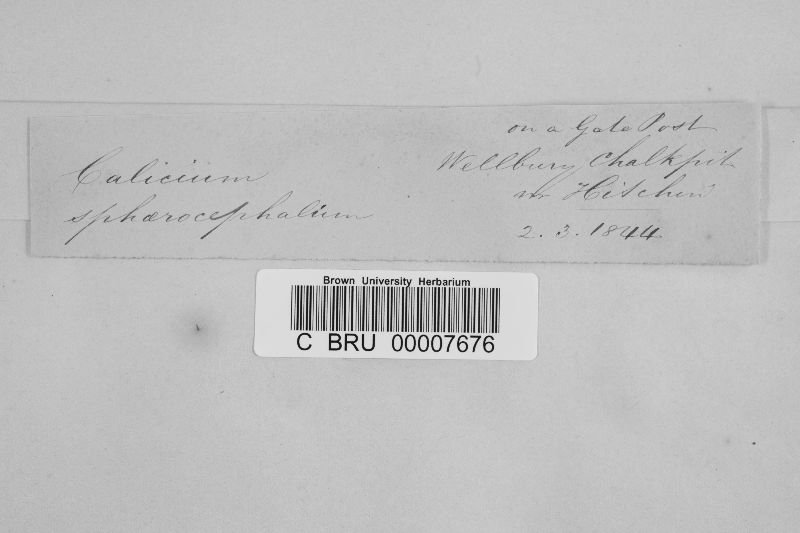 on a Gate Post
Wellbury Chalkpit
nr Hitchin
2. 3. 1844
Calicium
sphærocephalum
Brown University Herbarium
C BRU 00007676